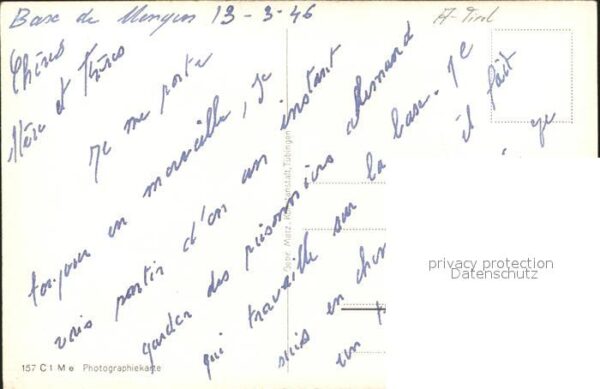 Base de Mengen 13-3-46
A-Tirol
Chères
Mère et Frères
Je me porte
toujour en merveille, Je
vais partir d'un instant
garder des prisonniers allemand
qui travaille sur la base. Je
suis en il fait
un
Gebr. Metz, Kunstanstalt, Tübingen
privacy protection
Datenschutz
157 C t M e Photographiekarte